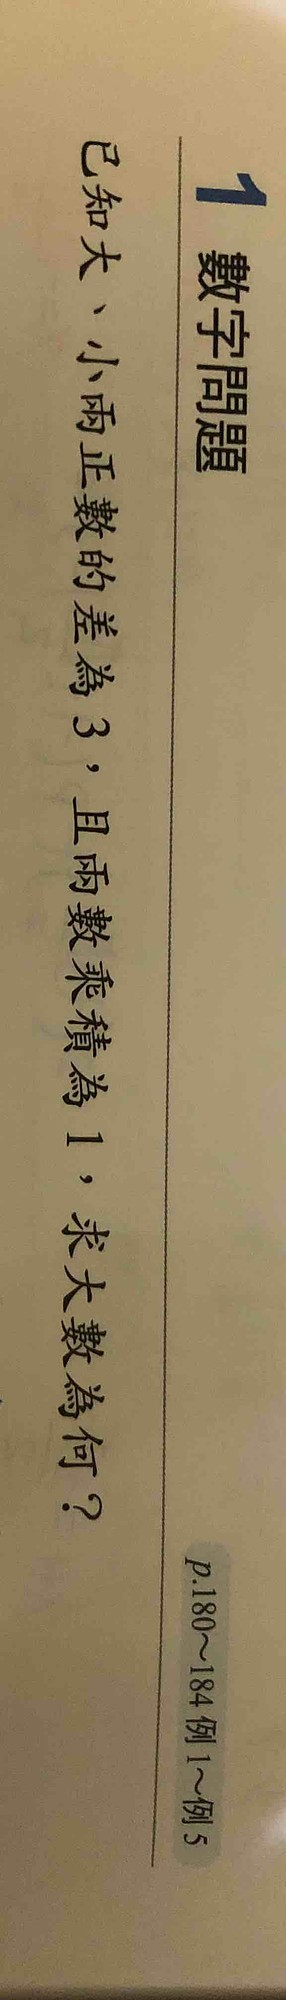 1 數字問題
p.180～184 例 1～例 5
已知大、小兩正數的差為 3，且兩數乘積為 1，求大數為何？